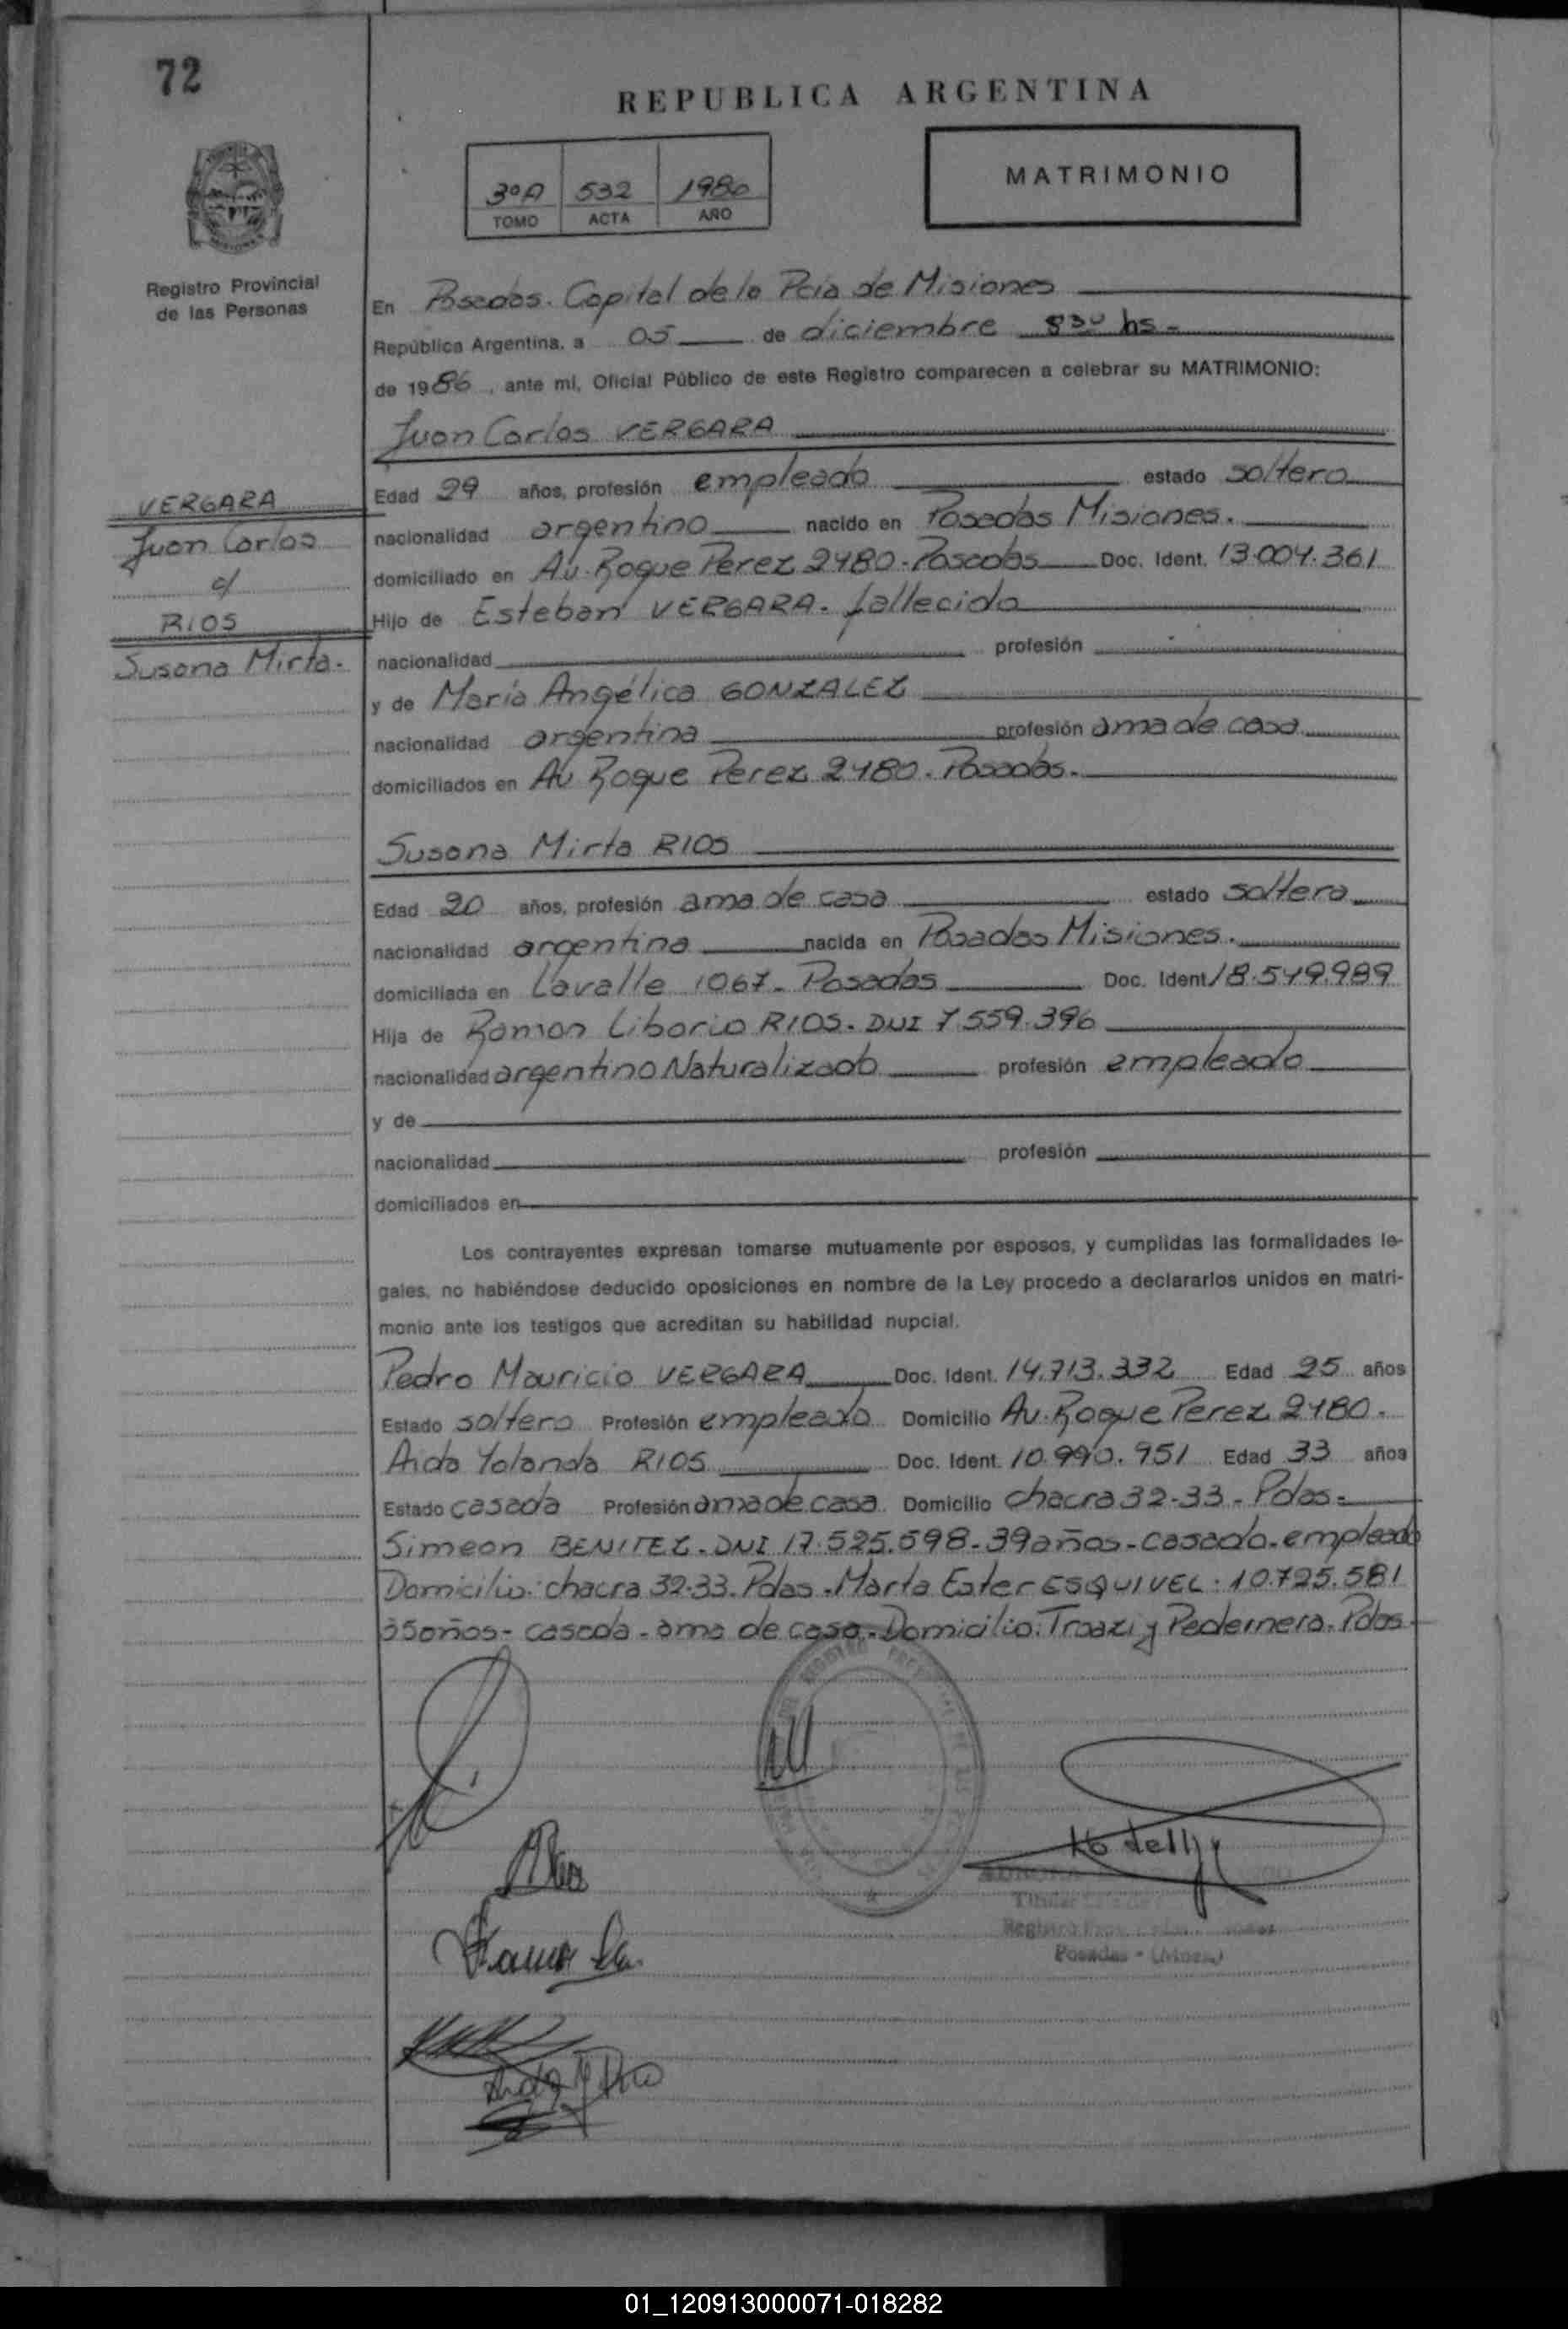 72
REPUBLICA ARGENTINA
3ºA 532 1986
TOMO ACTA AÑO
MATRIMONIO
Registro Provincial
de las Personas
En Posadas. Capital de la Pcia de Misiones
República Argentina, a 05 de diciembre 830 hs-
de 1986, ante mi, Oficial Público de este Registro comparecen a celebrar su MATRIMONIO:
Juan Carlos VERGARA
VERGARA
Juan Carlos
c/
RIOS
Susana Mirta.
Edad 29 años, profesión empleado estado soltero
nacionalidad argentino nacido en Posadas Misiones.
domiciliado en Av. Roque Perez 2480-Posadas Doc. Ident. 13.004.361
Hijo de Esteban VERGARA. fallecido
nacionalidad profesión
y de María Angélica GONZALEZ
nacionalidad argentina profesión ama de casa
domiciliados en Av Roque Perez 2480. Posadas.
Susana Mirta RIOS
Edad 20 años, profesión ama de casa estado soltera
nacionalidad argentina nacida en Posadas Misiones.
domiciliada en Lavalle 1067- Posadas Doc. Ident. 18.549.989
Hija de Ramon Liborio RIOS. DNI 7559.396
nacionalidad argentino Naturalizado profesión empleado
y de
nacionalidad profesión
domiciliados en
Los contrayentes expresan tomarse mutuamente por esposos, y cumplidas las formalidades le-
gales, no habiéndose deducido oposiciones en nombre de la Ley procedo a declararlos unidos en matri-
monio ante los testigos que acreditan su habilidad nupcial.
Pedro Mauricio VERGARA Doc. Ident. 14.713.332 Edad 25 años
Estado soltero Profesión empleado Domicilio Av. Roque Perez 2480.
Aida Yolanda RIOS Doc. Ident. 10.990.951 Edad 33 años
Estado casada Profesión ama de casa Domicilio chacra 32-33- Pdas-
Simeon BENITEZ. DNI 17.525.598-39años-casado-empleado
Domicilio: chacra 32-33. Pdas. Marta Ester ESQUIVEL: 10.725.581
35años- casada-ama de casa-Domicilio: y Pedernera. Pdas-
Titular
Registro
Posadas - (Mnes.)
01_120913000071-018282